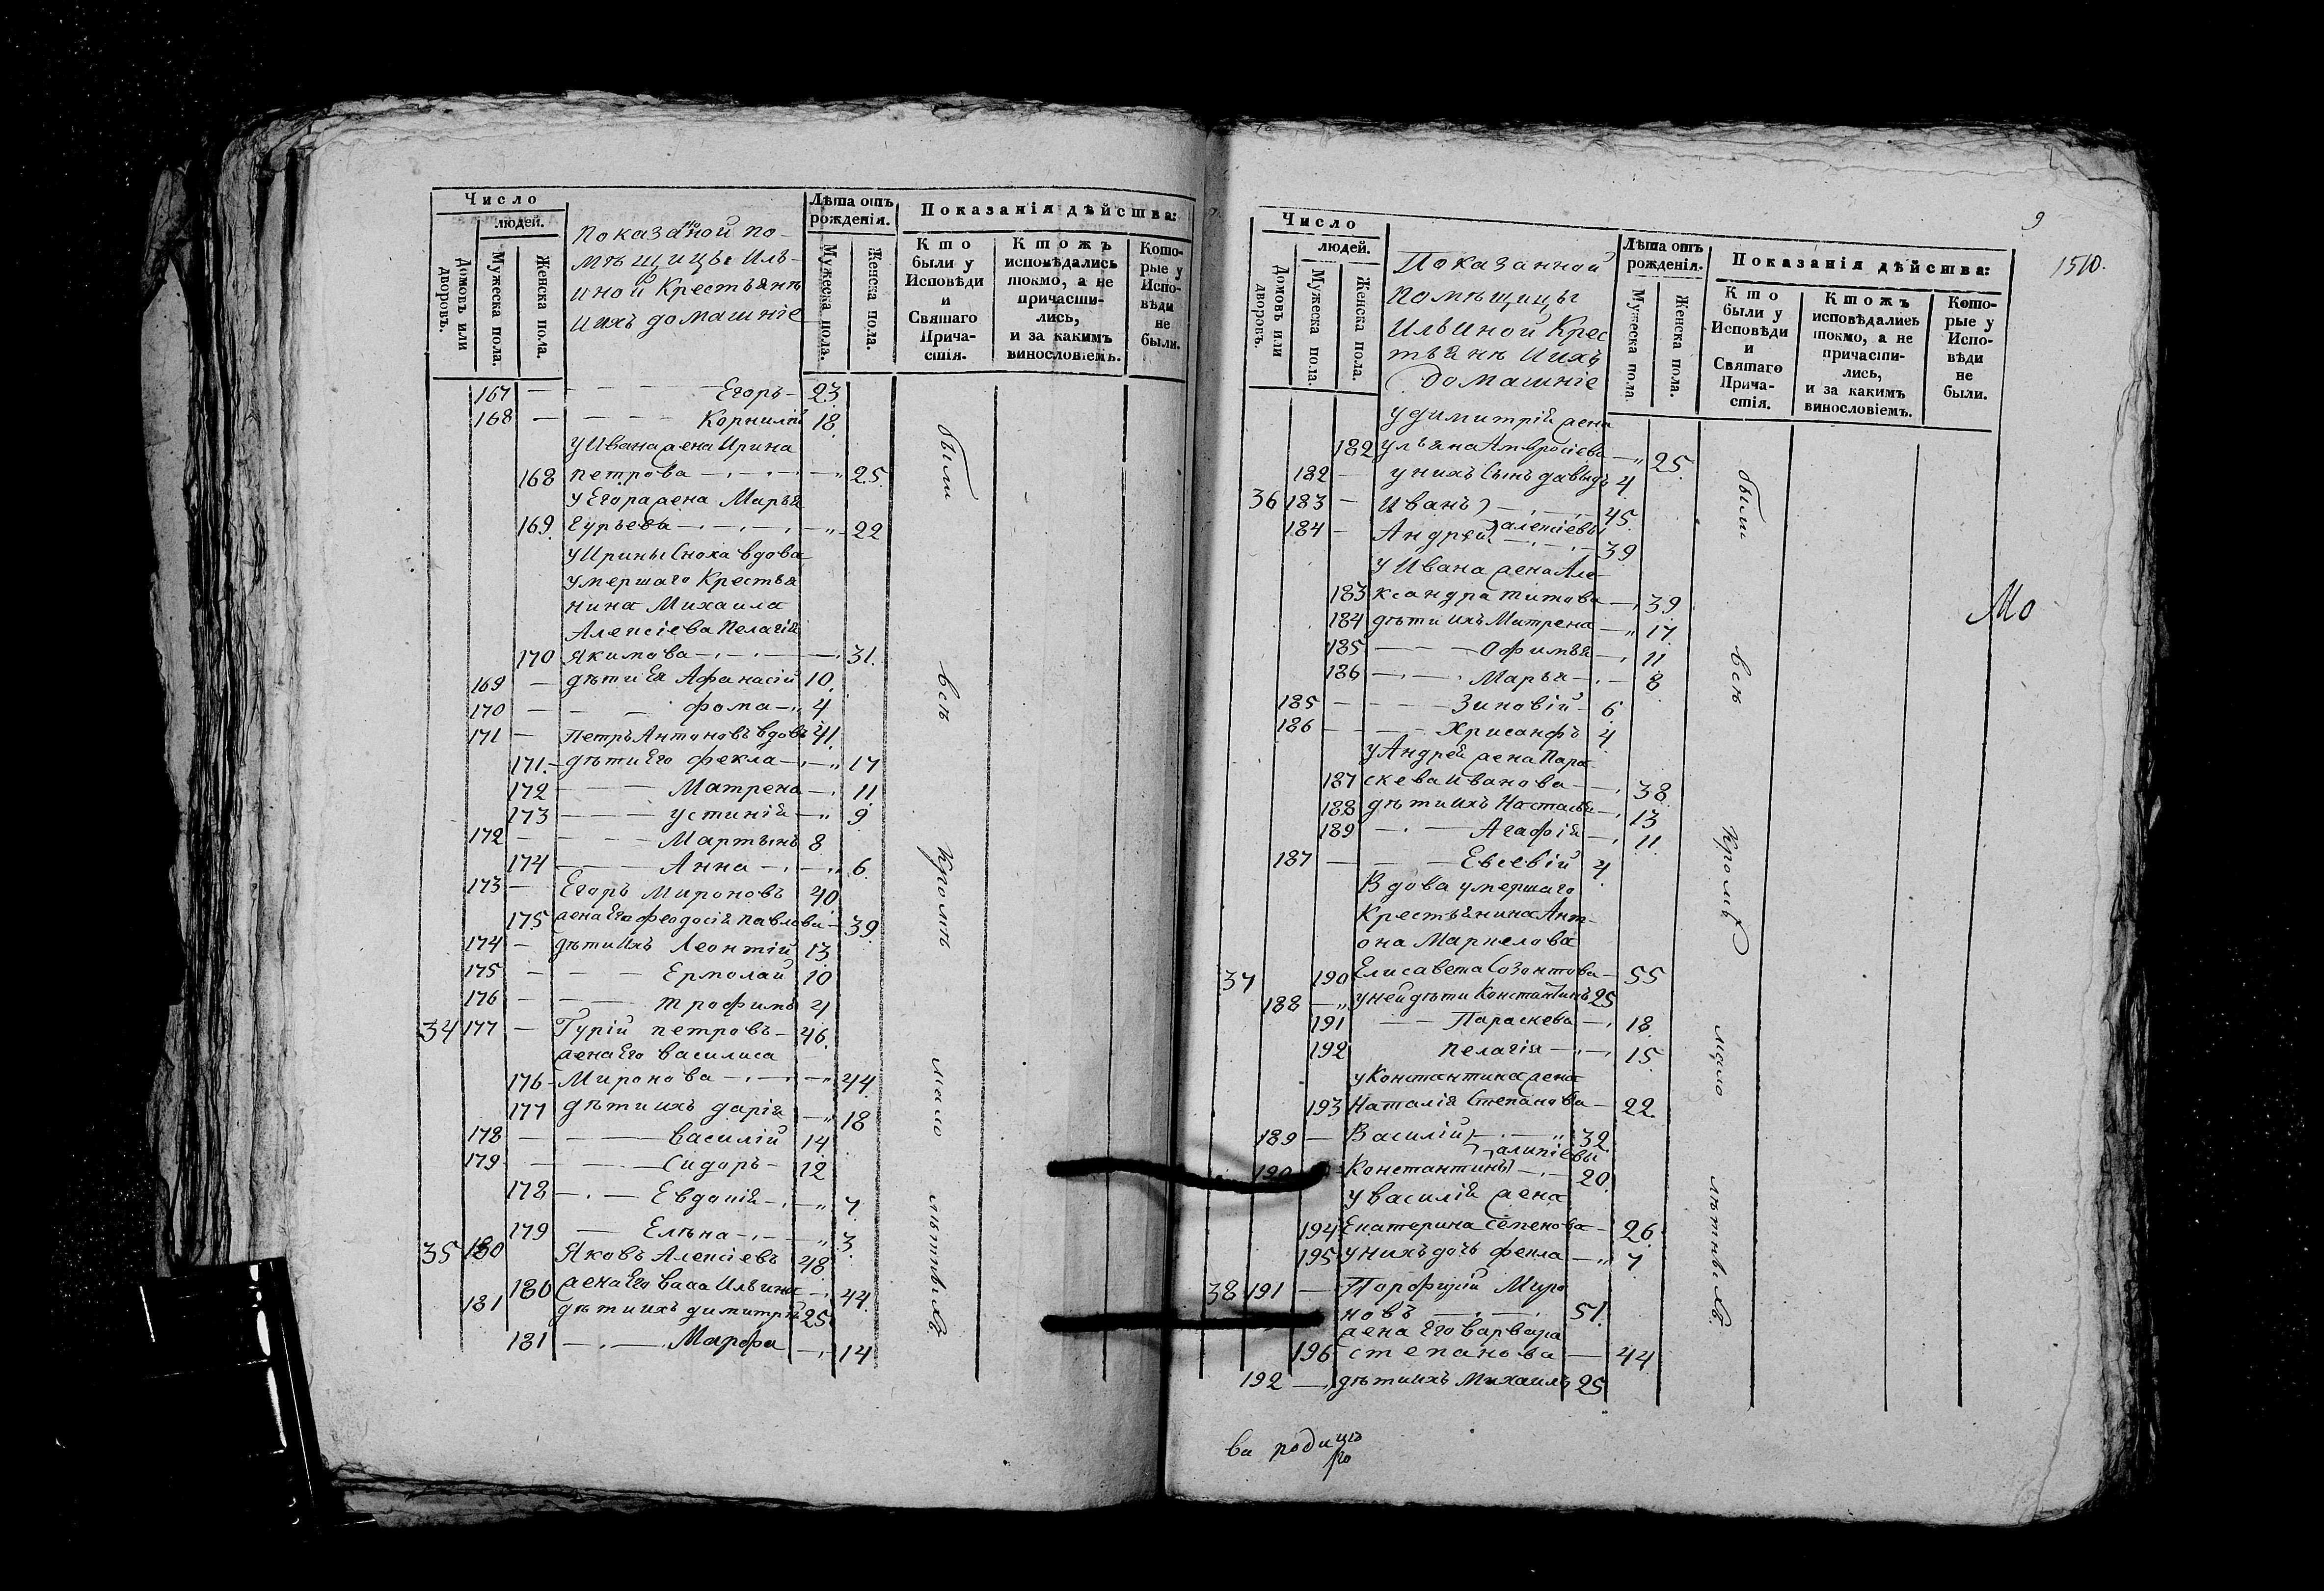 Число
людей.
Домовъ или дворовъ.
Мужеска пола.
Женска пола.
Показанной по-
мѣщицы Иль-
иной Крестьянѣ
Иихъ домашніе
Лѣта отъ рожденія.
Мужеска пола.
Женска пола.
Показанія дѣйства:
Кто были у Исповѣди и Святаго Прича-стія.
Ктожъ исповѣдались токмо, а не причасти-лись, и за какимъ винословіемъ.
Кото-рые у Испо-вѣди не были.
167 — — — — Егоръ — 23
168 — — — — Корнилій 18
У Ивана жена Ирина
168 петрова — 25
У Егора жена Марья
169 Гурьева — 22
У Ирины Сноха вдова
умершаго Крестья
нина Михаила
Алексіева Пелагія
170 Якимова — 31.
169 — дѣти Ея Афанасій 10.
170 — — фома — 4
171 — Петръ Антоновъ вдовъ 41.
171. — дѣти Его фекла — 17
172 — — — Матрена — 11
173 — — — устинія — 9
172 — — — Мартынъ 8
174 — — — Анна — 6.
173 — Егоръ Мироновъ 40
175 жена Его феодосія павлова — 39
174 — дѣти Ихъ Леонтій 13
175 — — — Ермолай 10
176 — — — трофимъ 4
34 177 — Гурій петровъ — 46.
жена Его василиса
176 — Миронова — 44
177 дѣти ихъ дарія — 18
178 — — — василій 14
179 — — — Сидоръ — 12
178 — — Евдокія — 7.
179 — Елѣна — 3.
35 180 Яковъ Алексіевъ 48
180 жена Его васса Ильина — 44
181 дѣти ихъ димитрій 25.
181 — — Марфа — 14
были всѣ Кромѣ мало лѣтныхъ.
9
1510.
Число
людей.
Домовъ или дворовъ.
Мужеска пола.
Женска пола.
Показанной
помѣщицы
Ильиной Крес
тьянѣ Иихъ
домашніе
Лѣта отъ рожденія.
Мужеска пола.
Женска пола.
Показанія дѣйства:
Кто были у Исповѣди и Святаго Прича-стія.
Ктожъ исповѣдались токмо, а не причасти-лись, и за какимъ винословіемъ.
Кото-рые у Испо-вѣди не были.
у димитрія жена
182 ульяна Амвросіева — 25
182 — у нихъ Сынъ давыдъ 4
36 183 — Иванъ) — 45.
алексіевы
184 — Андрей) — 39
у Ивана жена Але-
183 ксандра титова — 39
184 дѣти ихъ Матрена — 17
185 — — Офимья — 11
186 — — Марья — 8
185 — — — Зиновій — 6
186 — — — Хрисанфъ 4
у Андрея жена Пара
187 скева иванова — 38
188 дѣти ихъ Настасья — 13
189 — — Агафія — 11
187 — — — Евсевій 4
Вдова умершаго
Крестьянина Ант-
она Маркелова
37 190 Елисавета Созонтова — 55
188 — у неи дѣти Константинъ 25
191 — — Параскева — 18
192 пелагія — 15
у Константина жена
193 Наталія Степанова — 22
189 — Василій) — 32
алипіевы
190 Константинъ) — 20
у василія жена
194 Екатерина Семенова — 26
195 у нихъ дочь фекла — 7
38 191 — Порофирій Миро
новъ — 51.
жена Его варвара
196 степанова — 44
192 — дѣти ихъ Михаилъ 25
были всѣ Кромѣ мало лѣтныхъ.
Мо